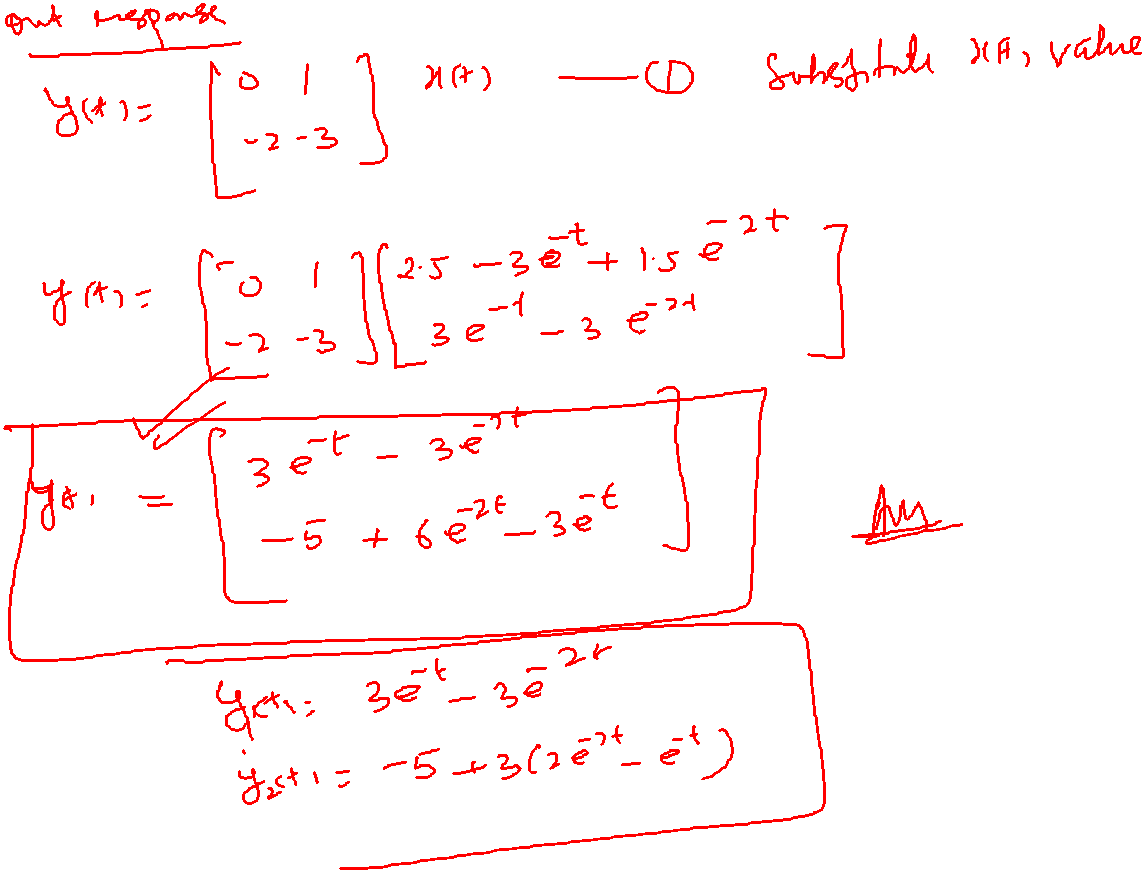 out response
y(t) = [ 0 1 x(t) — ① Substitute x(t) value
-2 -3 ]
y(t) = [ 0 1 ] [ 2.5 - 3e^-t + 1.5 e^-2t ]
-2 -3 3e^-t - 3 e^-2t
y(t) = [ 3e^-t - 3e^-2t ]
-5 + 6e^-2t - 3e^-t
Ans
y₁(t) = 3e^-t - 3e^-2t
y₂(t) = -5 + 3(2e^-2t - e^-t)